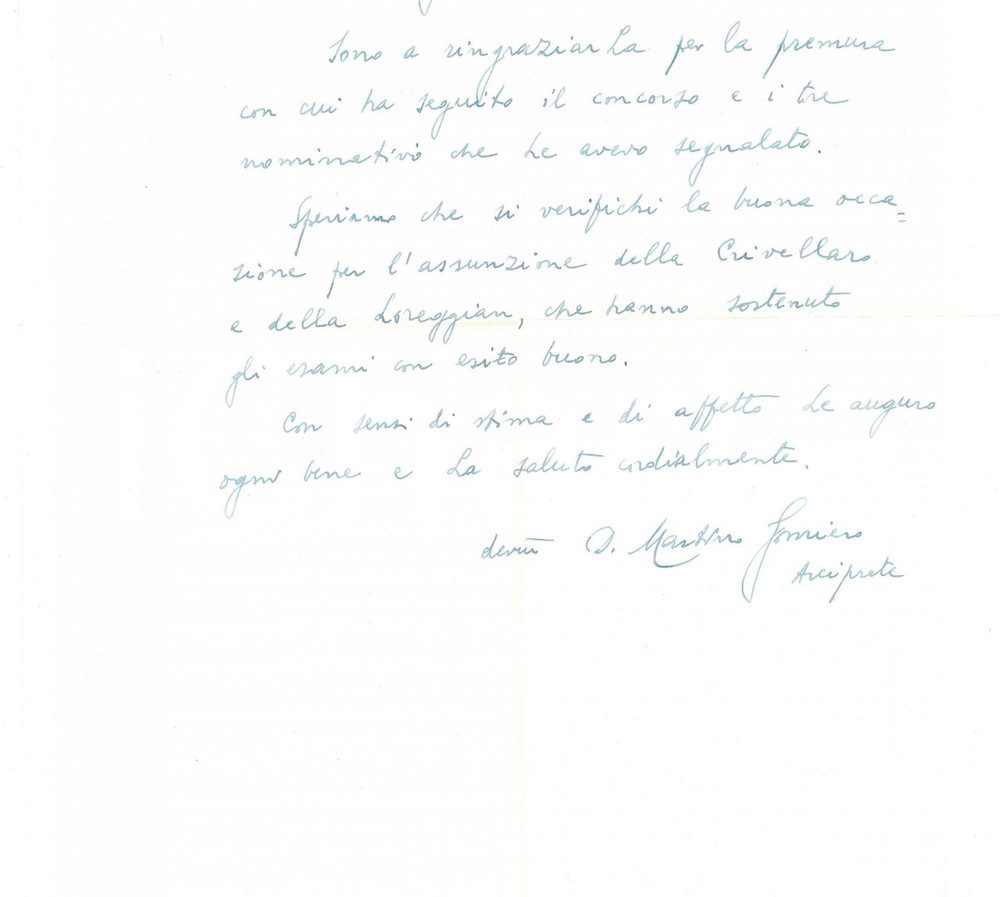 Sono a ringraziarLa per la premura
con cui ha seguito il concorso e i tre
nominativi che Le avevo segnalato.
Speriamo che si verifichi la buona occa=
sione per l'assunzione della Crivellaro
e della Loreggian, che hanno sostenuto
gli esami con esito buono.
Con sensi di stima e di affetto Le auguro
ogni bene e La saluto cordialmente.
dev.mo D. Martino Gomiero
Arciprete